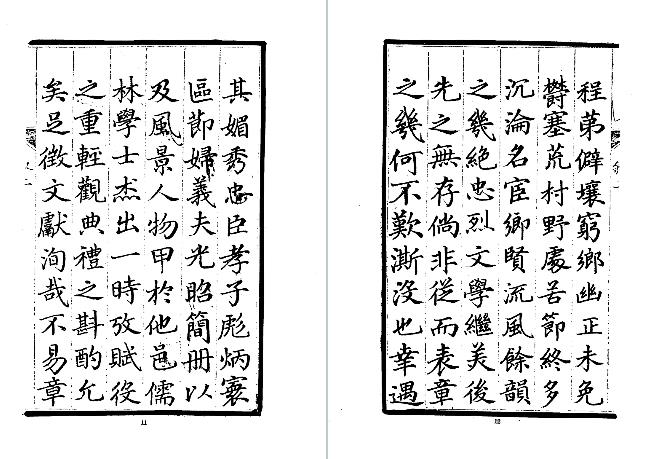 程苐僻壤窮鄉幽正未免
欝塞荒村野處苦節終多
沉淪名宦鄉賢流風餘韻
之幾絕忠烈文學繼美後
先之無存倘非從而表章
之幾何不歎澌沒也幸遇
其媚秀忠臣孝子彪炳寰
區節婦義夫光昭簡冊以
及風景人物甲於他邑儒
林學士杰出一時攷賦役
之重輕觀典禮之斟酌允
矣足徵文獻洵哉不易章